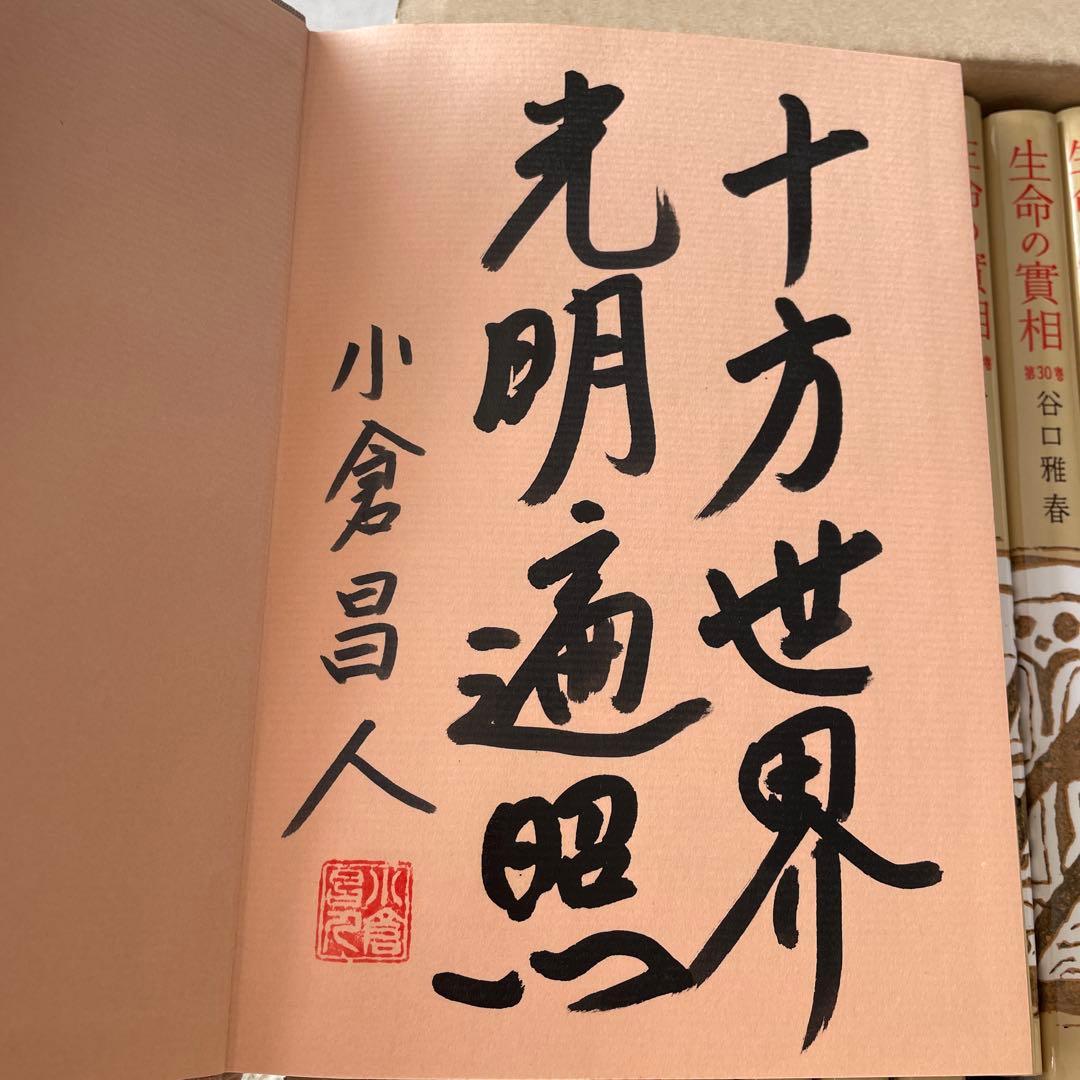 十方世界
光明遍照
小倉昌人
小倉昌人
生命の實相
第30巻
谷口雅春